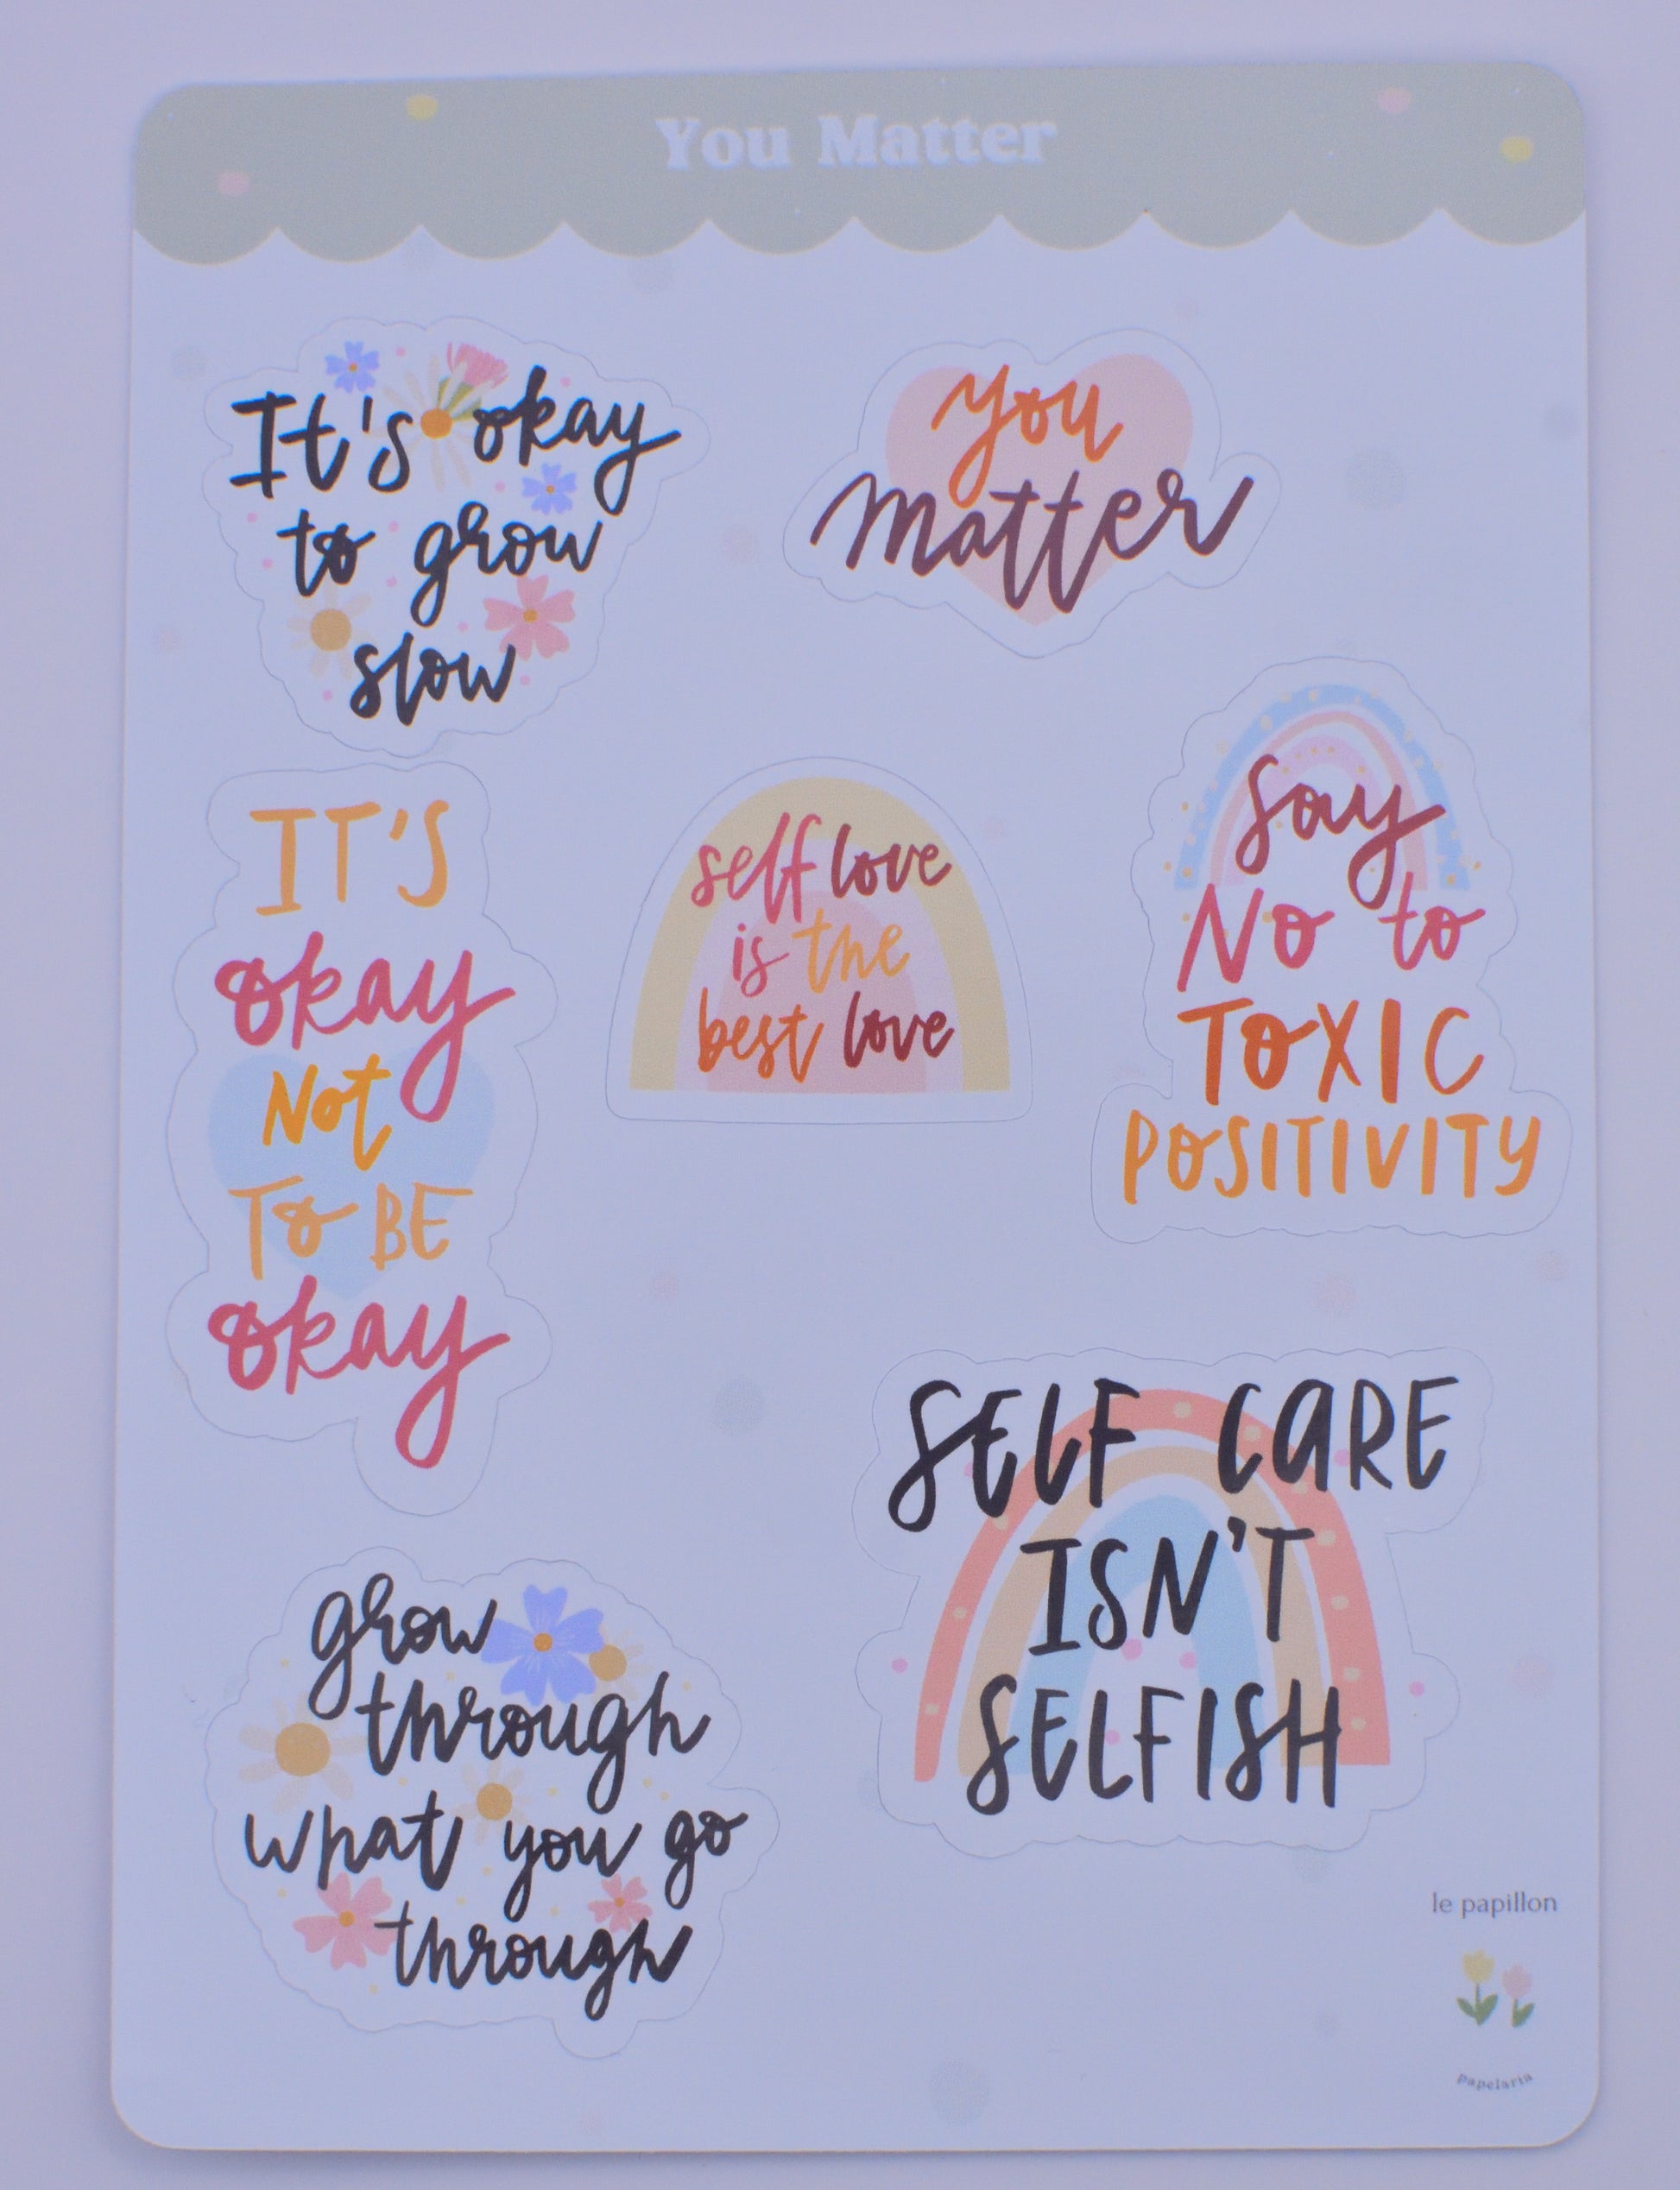 You Matter
It's okay
to grow
slow
you
matter
IT'S
okay
Not
To BE
okay
self love
is the
best love
Say
No to
TOXIC
POSITIVITY
SELF CARE
ISN'T
SELFISH
grow
through
what you go
through
le papillon
papelaria